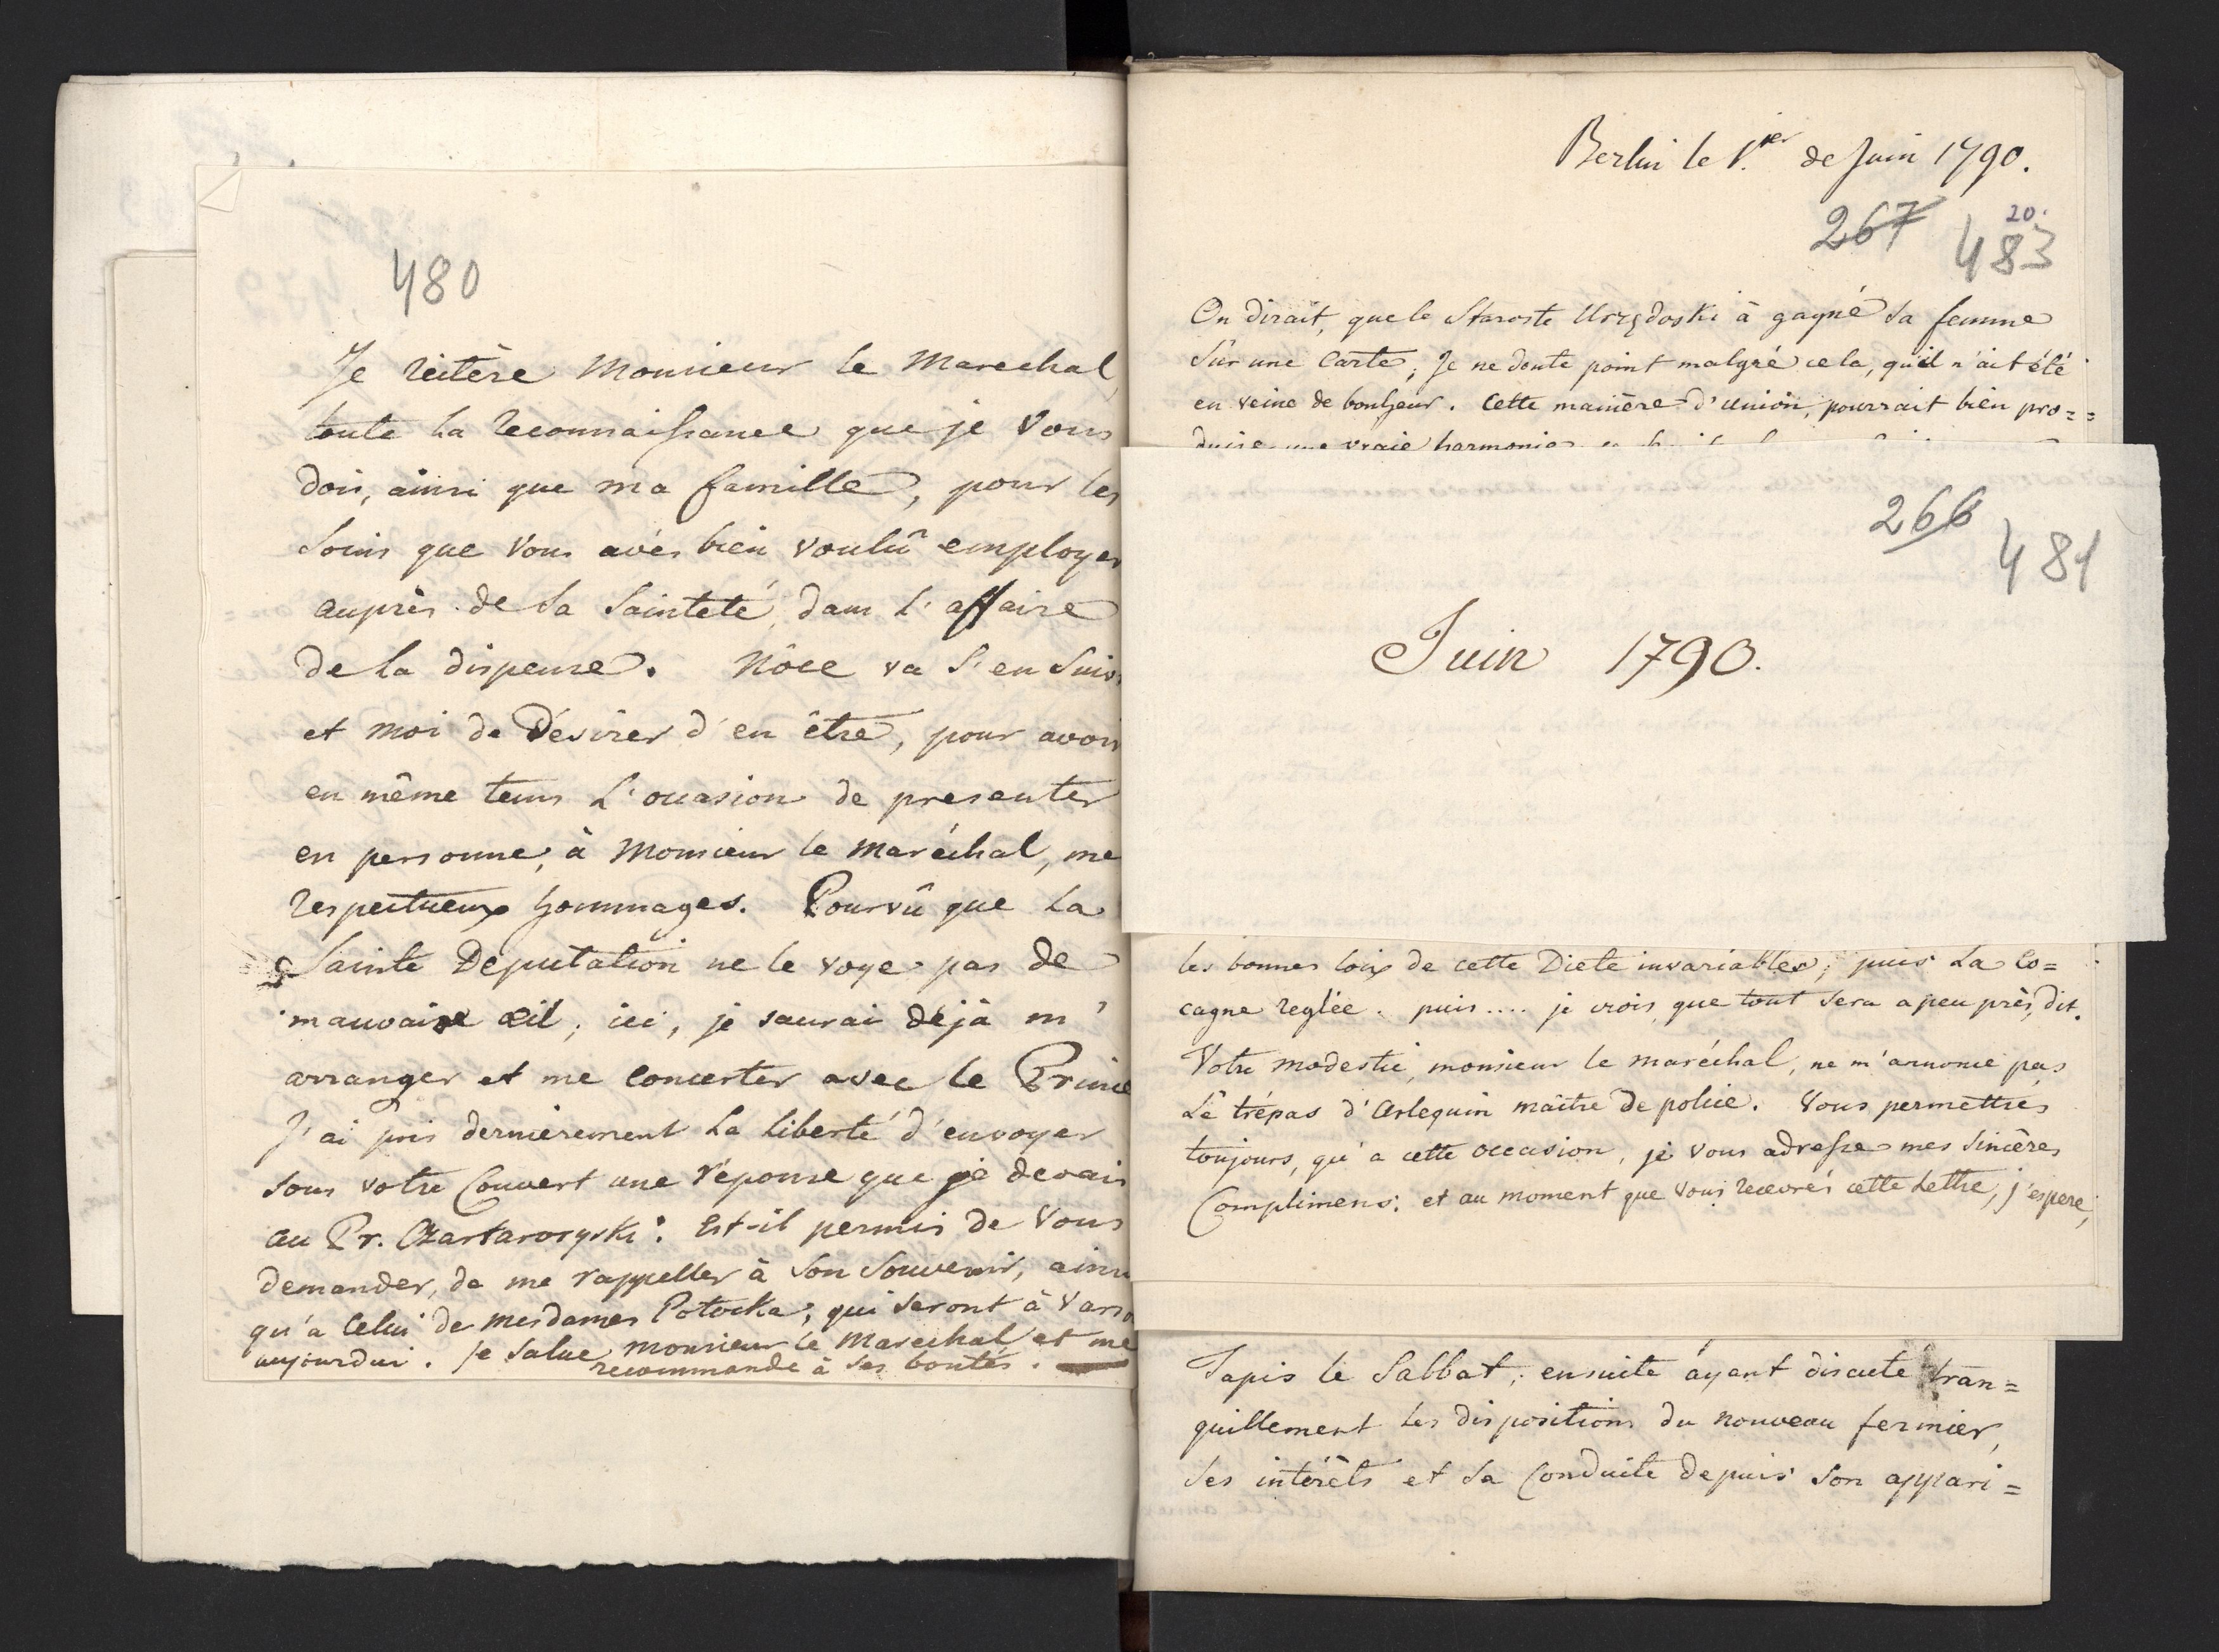 480
Je réitère Monsieur le Marechal,
toute la reconnaissance que je Vous
dois, ainsi que ma famille, pour les
soins que Vous avés bien voulû employer
auprès de Sa Sainteté, dans l'affaire
de la dispense. Nôce va s'en suiv
et moi de Désirer d'en être, pour avoir
en même tems l'occasion de presenter
en personne, à Monsieur le Maréchal, me
respectueux hommages. Pourvû que la
Sainte Deputation ne le voye pas de
mauvaise œil; ici, je saurai déjà m'
arranger et me concerter avec le Prince
J'ai pris dernièrement la liberté d'envoyer
sous votre Couvert une réponse que je devais
au Pr. Czartaroryski: Est-il permis de Vous
demander, de me rappeller à Son Souvenir, ainsi
qu'à Celui de mesdames Potocka, qui seront à Varso
aujourdui. Je Salue monsieur le Marechal et me
recommande à ses bontés.
Berlin le 1.er de Juin 1790.
267 20.
483
On dirait, que le Staroste Urzędoski à gagné sa femme
sur une Carte; Je ne doute point malgré cela, qu'il n'ait été
en veine de bonheur. Cette manière d'union, pourrait bien pro=
duire une vraie harmonie
266
481
Juin 1790.
les bonnes loix de cette Diete invariables; puis la Co=
cagne reglée. puis.... je crois, que tout sera apeu près, dit.
Votre modestie, monsieur le maréchal, ne m'annonce pas
Lê trépas d'Arlequin maître de police. Vous permettrés
toujours, qu'a cette occasion, je vous adresse mes sincères
Complimens: et au moment que vous recevrés cette Lettre, j'espere,
Tapis le Sabbat; ensuite ayant discuté tran=
quillement les dispositions du nouveau fermier,
ses intérêts et sa Conduite depuis son appari=